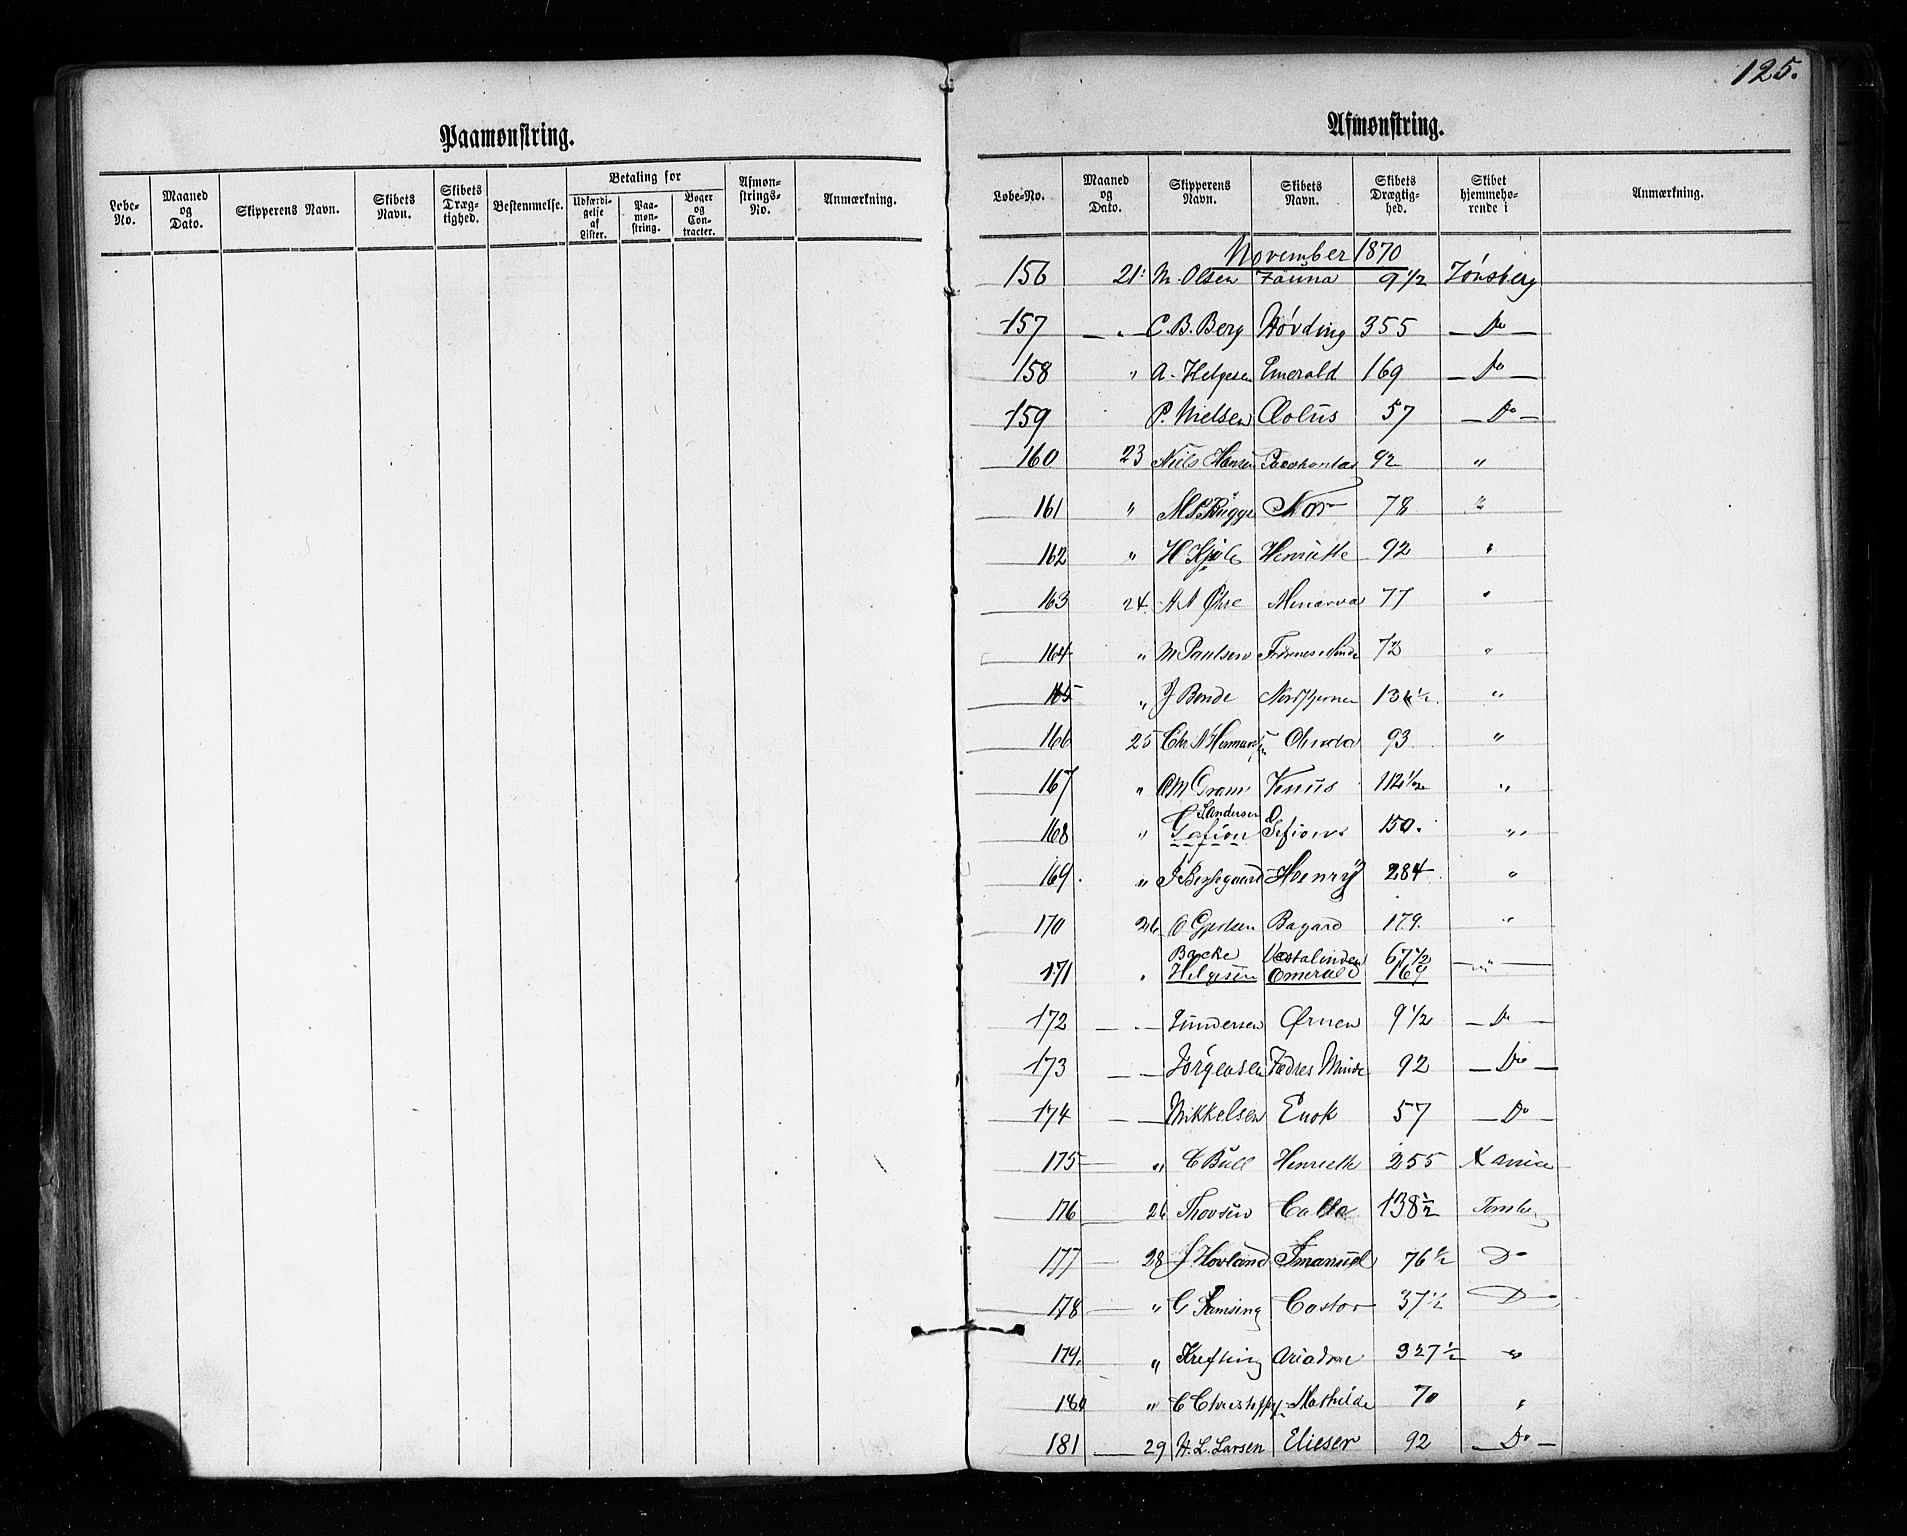 125.
Paamønstring.
Løbe-No. Maaned og Dato. Skipperens Navn. Skibets Navn. Skibets Dræg-tighed. Bestemmelse. Betaling for Udfærdi-gelse af Lister. Paa-møn-string. Bøger og Con-tracter. Afmøn-strings-No. Anmærkning.
Afmønstring.
Løbe-No. Maaned og Dato. Skipperens Navn. Skibets Navn. Skibets Drægtig-hed. Skibet hjemmehø-rende i Anmærkning.
November 1870
156 21 M. Olsen Fauna 9 1/2 Tønsberg
157 — „ — C. B. Berg Høvding 355 — Do —
158 „ A. Helgesen Emerald 169 — Do —
159 P. Nielsen Æolus 57 — Do —
160 23 Niels Hansen Pocohontas 92 „
161 „ Bugge Nor 78 „
162 „ H Henriette 92 „
163 24. Minerva 77 „
164 „ M Paulsen 72 „
165 „ J Bonde Nordstjernen „
166 25 Chr Olinda 93 „
167 „ Gram Venus 112 1/2 „
168 „ C Sandersen Gefion Gefion 150. „
169. „ Henry 284 „
170 26 Bayard 179. „
171 „ Backe Vestalinden 67 1/2
Helgesen Emerald 169 — „ —
172 — „ — Gundersen Ørnen 9 1/2 — Do —
173 — — Jørgensen Fædres Minde 92 — Do —
174 — Mikkelsen Enok 57 — Do —
175 — „ C Bull Henriette 255
176 26 Thorsen Calla 138 1/2 Tønsberg
177 — 28 J. Hovland Imanuel 76 1/2 Do
178 — „ G Ramsing Castor 37 1/2 Do
179. „ Krefting Ariadne 327 1/2 „
180 „ C Christoffers. Mathilde 70 „
181 — 29 H. L. Larsen Elieser 92 — Do —